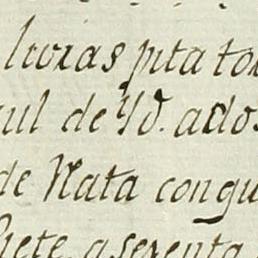 luras pita to
ul de Yd. ados
de Nata congu
siete, a sesenta